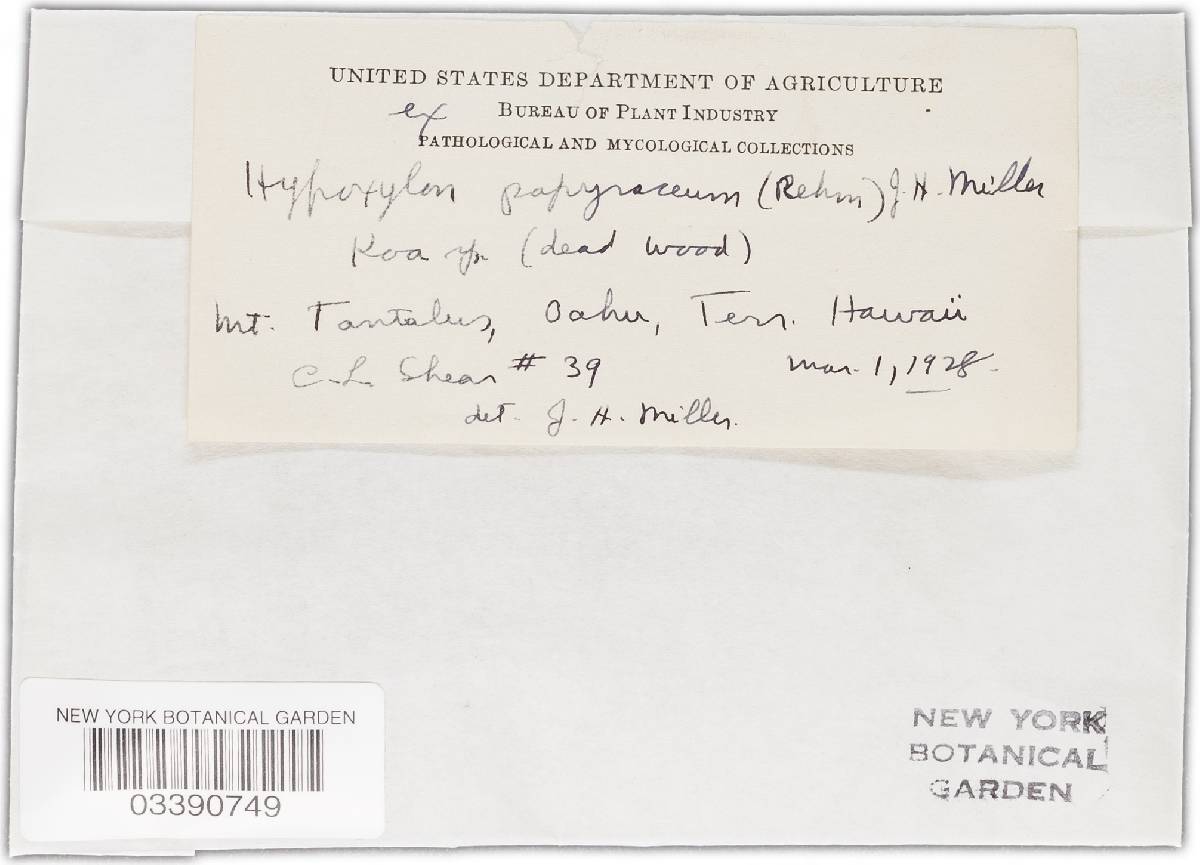 UNITED STATES DEPARTMENT OF AGRICULTURE
ex BUREAU OF PLANT INDUSTRY
PATHOLOGICAL AND MYCOLOGICAL COLLECTIONS
Hypoxylon papyraceum (Rehm) J. H. Miller
Koa (dead wood)
Mt. Tantalus, Oahu, Terr. Hawaii
C. L. Shear # 39 Mar. 1, 1928.
det. J. H. Miller.
NEW YORK BOTANICAL GARDEN
03390749
NEW YORK
BOTANICAL
GARDEN